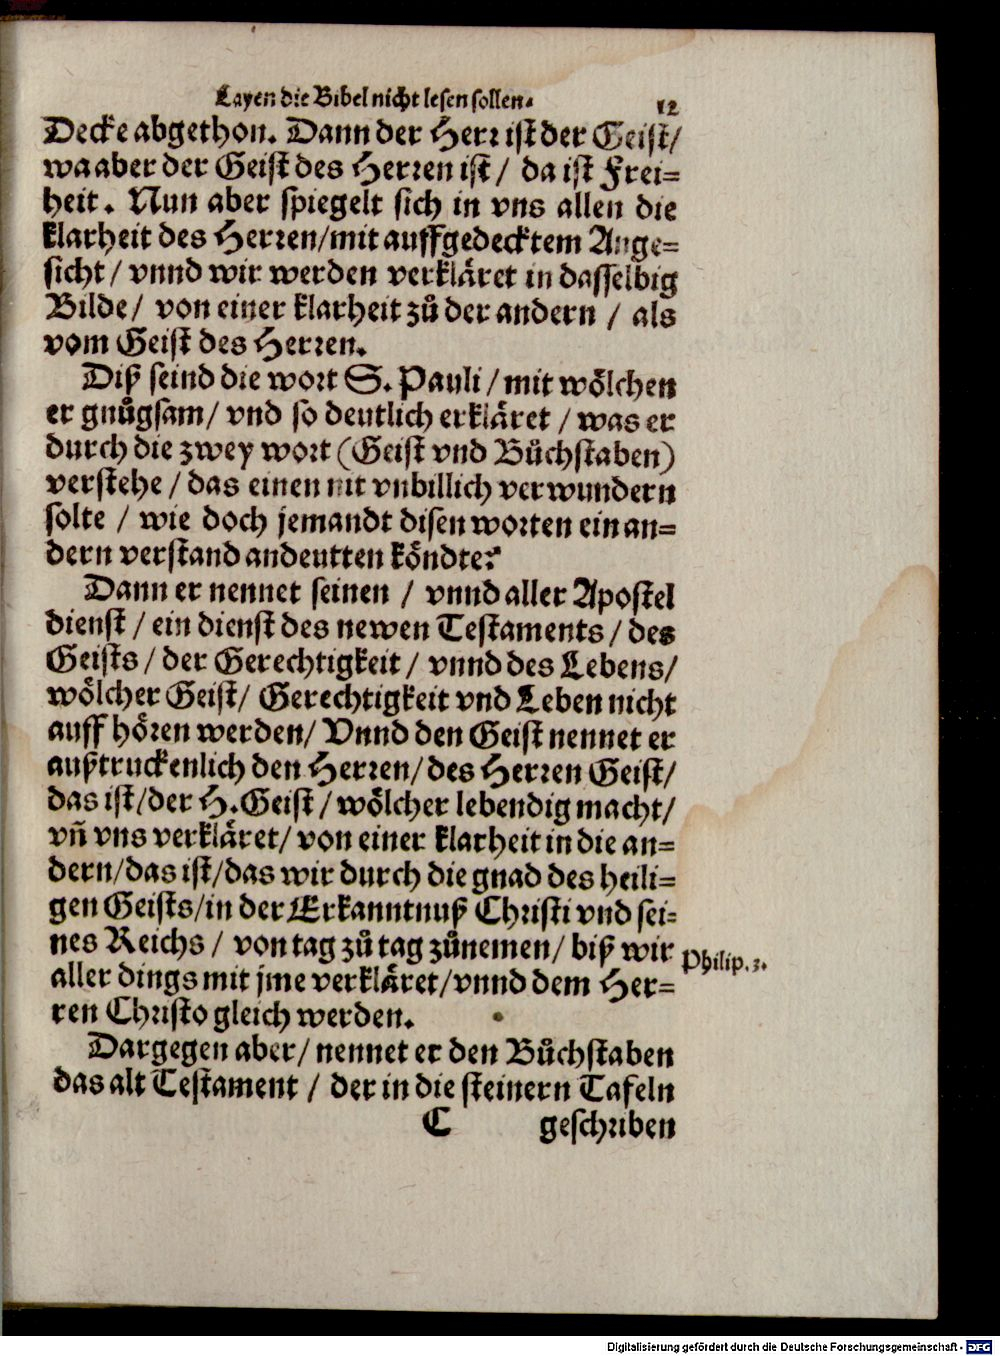 Layen die Bibel nicht lesen sollen. 12
Decke abgethon. Dann der Herr ist der Geist/
wa aber der Geist des Herren ist / da ist Frei=
heit. Nun aber spiegelt sich in vns allen die
klarheit des Herren/mit auffgedecktem Ange=
sicht / vnnd wir werden verkläret in dasselbig
Bilde / von einer klarheit zů der andern / als
vom Geist des Herren.
Diß seind die wort S. Pauli / mit wölchen
er gnůgsam/ vnd so deutlich erkläret / was er
durch die zwey wort (Geist vnd Bůchstaben)
verstehe / das einen nit vnbillich verwundern
solte / wie doch jemandt disen worten ein an=
dern verstand andeutten köndte?
Dann er nennet seinen / vnnd aller Apostel
dienst / ein dienst des newen Testaments / des
Geists / der Gerechtigkeit / vnnd des Lebens/
wölcher Geist/ Gerechtigkeit vnd Leben nicht
auff hören werden/ Vnnd den Geist nennet er
außtruckenlich den Herren/ des Herren Geist/
das ist/der H. Geist / wölcher lebendig macht/
vñ vns verkläret/ von einer klarheit in die an=
dern/das ist/das wir durch die gnad des heili=
gen Geists/in der Erkanntnuß Christi vnd sei=
nes Reichs / von tag zů tag zůnemen/ biß wir
Philip. 3.
aller dings mit jme verkläret/vnnd dem Her=
ren Christo gleich werden.
Dargegen aber/ nennet er den Bůchstaben
das alt Testament / der in die steinern Tafeln
C geschriben
Digitalisierung gefördert durch die Deutsche Forschungsgemeinschaft - DFG